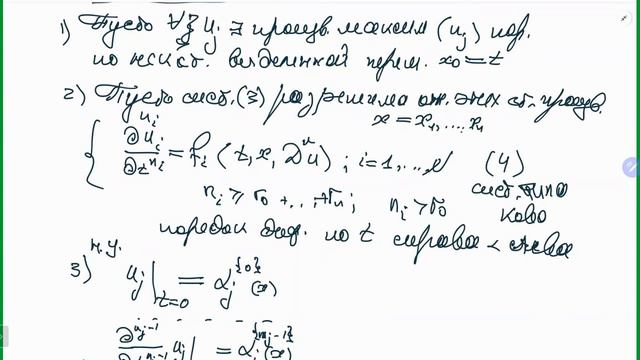 1) Пусть ∀ u_j ∃ произв. максим (n_j) пор.
по нек. выделенной перем. x_0 = t
2) Пусть сист. (3) разрешима отн. этих ст. произв.
x = x_1, ..., x_n
{ ∂^{n_i} u_i / ∂t^{n_i} = f_i (t, x, D^α u) ; i = 1, ..., N (4)
сист. типа
n_i ≥ r_0 + ... + r_n ; n_i > r_0 Ково
порядок диф. по t справа < слева
н.у.
3) u_j |_{t=0} = α_j^{0} (x)
- - - - - -
∂^{n_j-1} / ∂t^{n_j-1} u_j | = α_j^{n_j-1} (x)